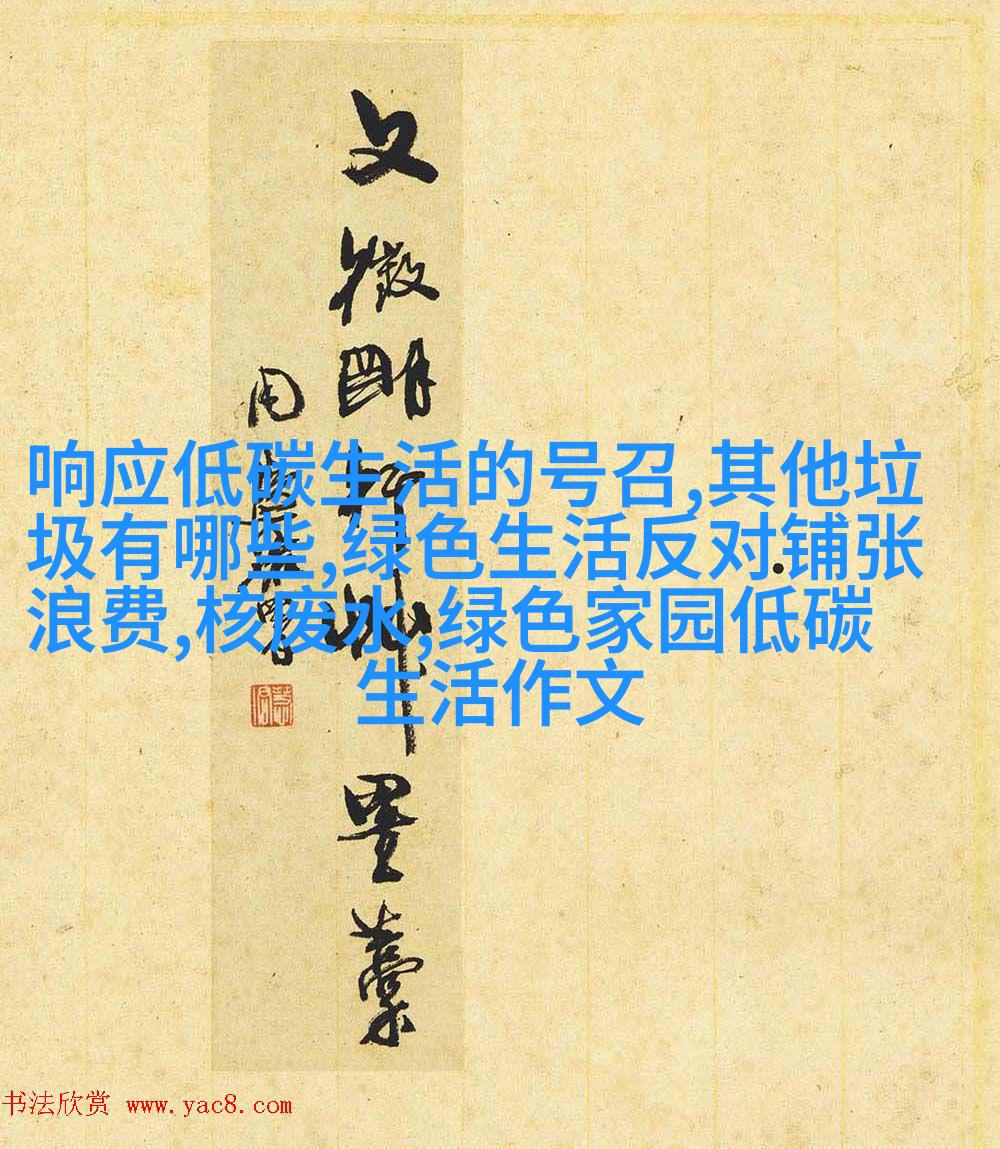 文徵明
墨藁
响应低碳生活的号召,其他垃
圾有哪些,绿色生活反对铺张
浪费,核废水,绿色家园低碳
生活作文
书法欣赏 www.yac8.com